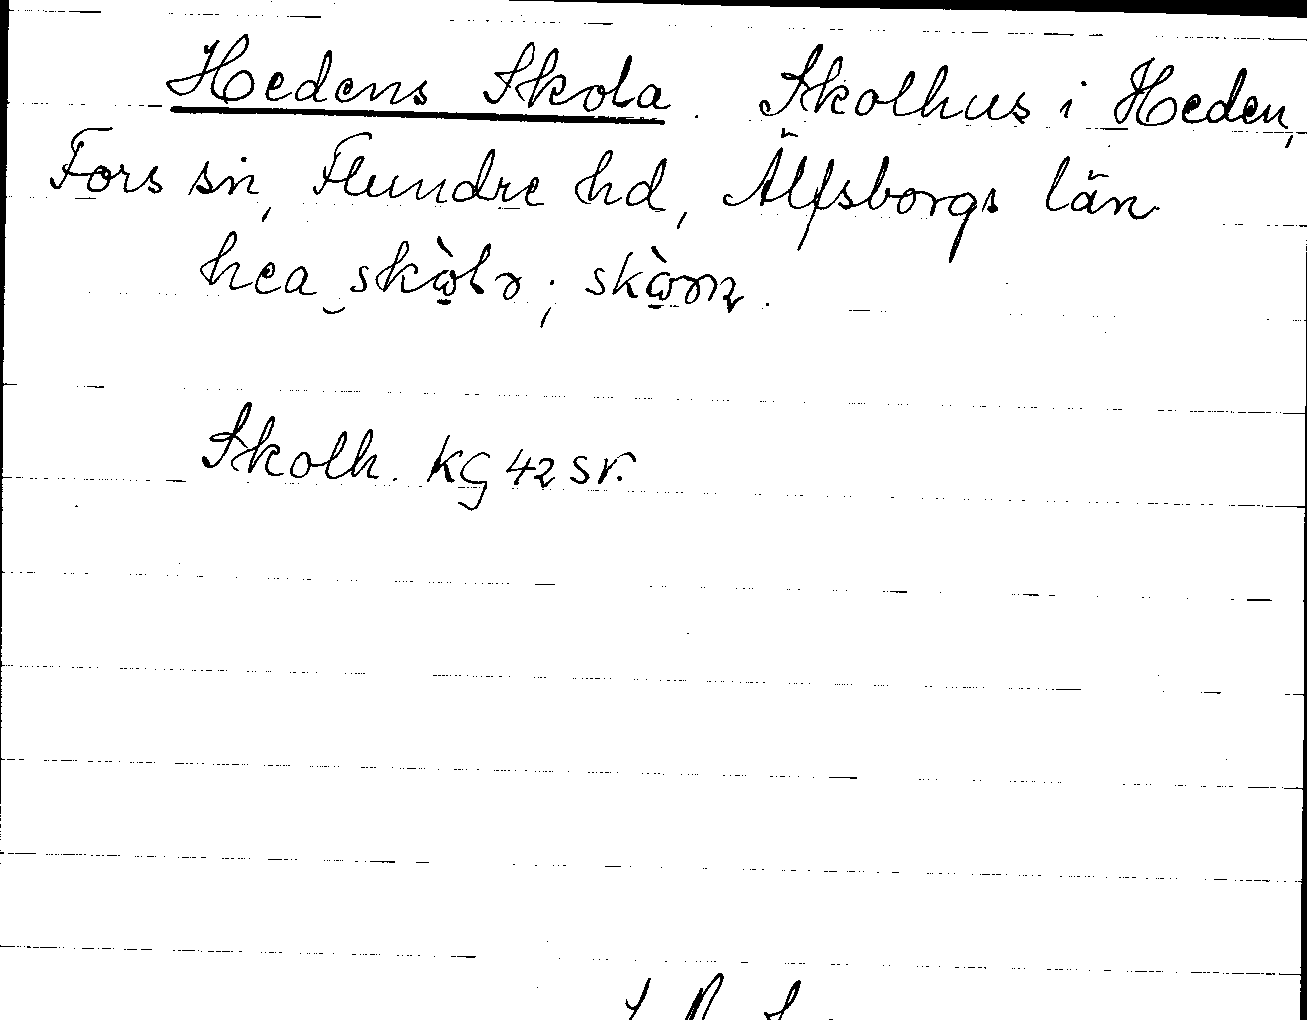 Hedens Skola. Skolhus i Heden,
Fors sn, Flundre hd, Älfsborgs län
Skolh. KG 42 sv.